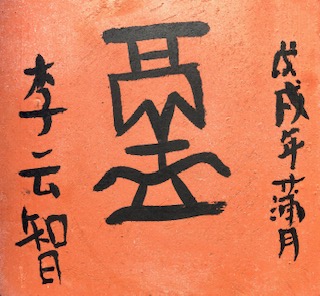 戊戌年蒲月
李云智